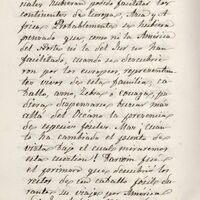 cuales hubieran podido facilitar los
continentes de Europa, Asia y A-
frica. Probablemente se hubiera
pensado que como ni la América
del Norte ni la del Sur no han
facilitado, cuando se descubrie-
ron por los europeos, representan-
tes vivos de esta familia, ca-
ballo, asno, zebra o couaga, pu-
diera dispensarse buscar mas
allá del Océano la presencia
de especies fósiles. Mas ¡cuan-
to ha cambiado el punto de
vista bajo el cual miraremos
esta cuestion! Darwin fue
el primero que descubrió los
restos de un caballo fósil du-
rante su viaje por América